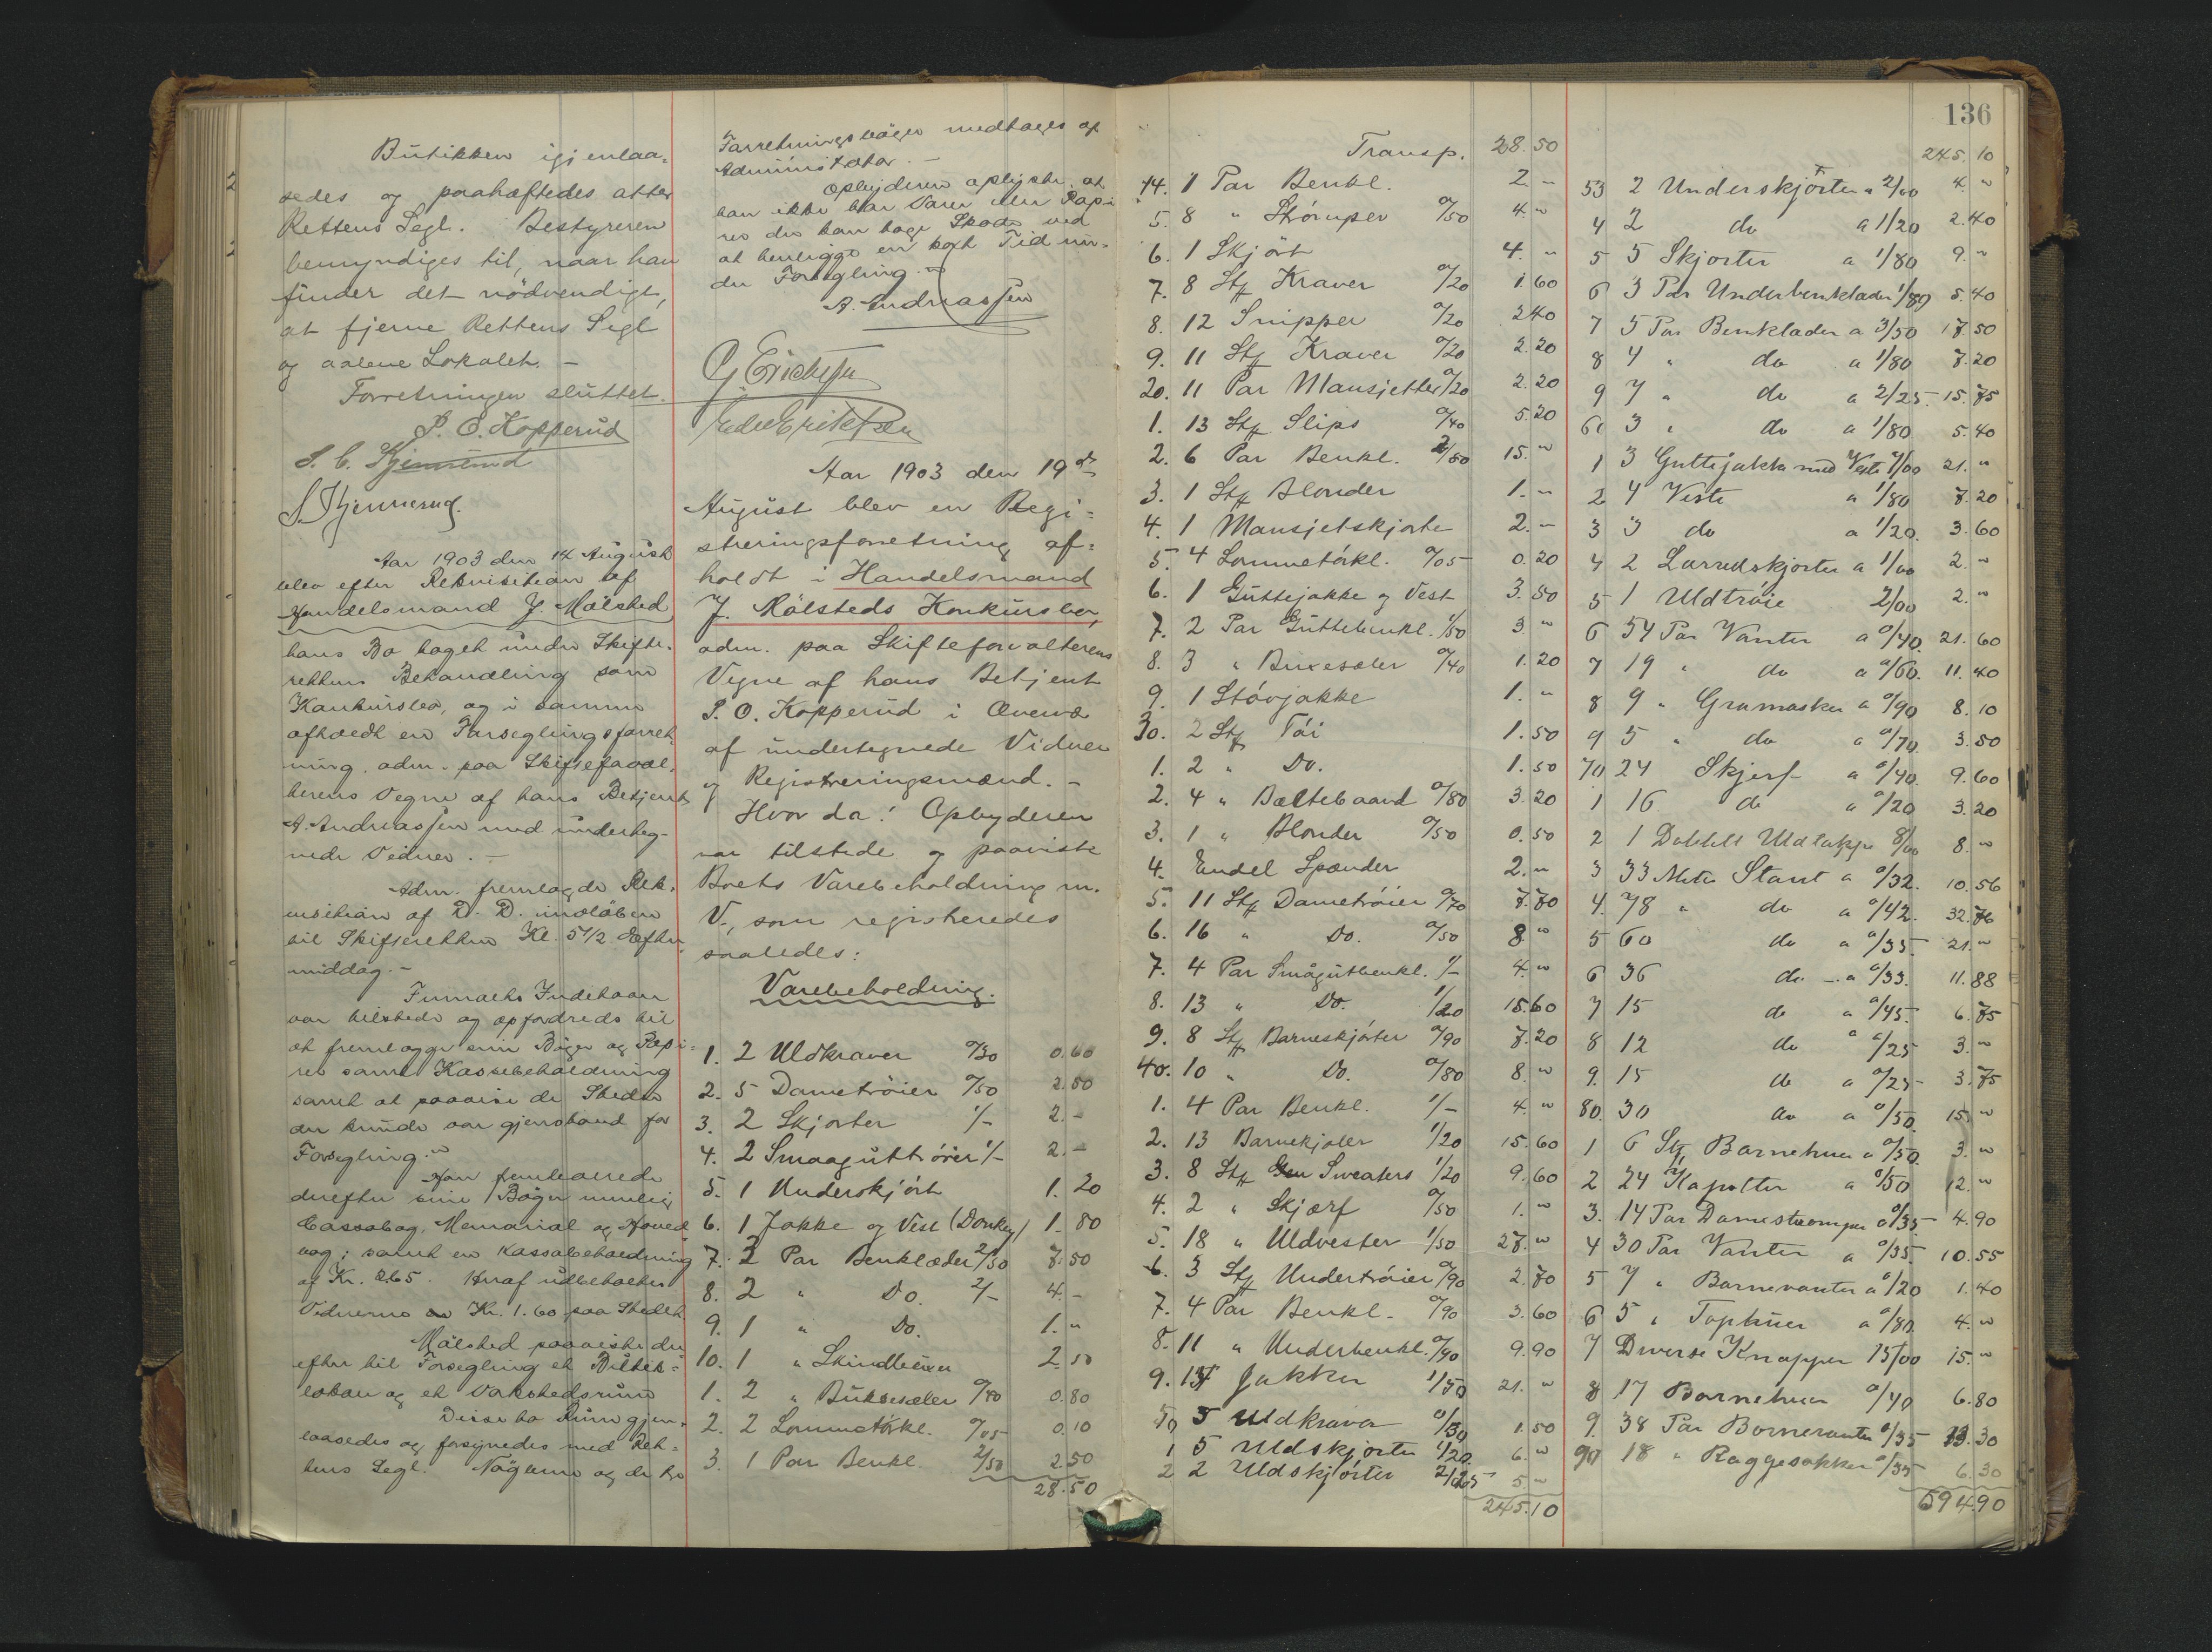 Butikken igjenlaa-
sedes og paahæftedes atter
Rettens Segl. Bestyreren
bemyndiges til, naar han
finder det nödvendigt,
at fjerne Rettens Segl
og aabne Lokalet. -
Forretningen sluttet.
P. O. Kopperud
Aar 1903 den 14 August
blev efter Rekvisition af
Handelsmand J. Mölsted
hans Bo taget under Skifte-
rettens Behandling som
Konkursbo, og i samme
afholdt en Forseglingsforret-
ning, adm. paa Skifteforval-
terens Vegne af hans Betjent
A. Andreassen med underteg-
nede Vidner. -
Adm. fremlagde Rek-
visition af D. D. indløben
til Skifteretten Kl. 5 1/2 Efter-
middag. -
Firmaets Indehaver
var tilstede og opfordreds til
at fremlægge sine Böger og Papi-
rer samt Kassebeholdning
samt at paavise de Steder
der kunde være gjenstand for
Forsegling. "
Han fremleverede
derefter sine Böger nemlig
Cassabog, Memorial og Hoved
bog; samt en Kassabeholdning
af Kr. 265. Heraf udbetaltes
Vidnerne Kr. 1.60 paa Stedet
Mölsted paaviste der
efter til Forsegling et Butik-
lokale og et Værkstedsrum
Disse to Rum gjen-
laasedes og forsynedes med Ret-
tens Segl. Nöglerne og de to
Forretningsböger medtages af
Administrator. -
Opbyderen oplyste at
han ikke har Varer eller Papi-
rer der kan tage Skade ved
at henligge en kort Tid un-
der Forsegling. "
A. Andreassen
G. Erichsen
Aar 1903 den 19de
August blev en Regi-
streringsforretning af-
holdt i Handelsmand
J. Mölsteds Konkursbo,
adm. paa Skifteforvalterens
Vegne af hans Betjent
P. O. Kopperud i Overvær
af undertegnede Vidner
og Registreringsmænd. -
Hvor da: Opbyderen
var tilstede og paaviste
Boets Varebeholdning m.
V., som registreredes
saaledes:
Varebeholdning.
1. 2 Uldkraver 0/30 0.60
2. 5 Dametröier 0/50 2.50
3. 2 Skjorter 1/- 2.-
4. 2 Smaaguttröier 1/- 2.-
5. 1 Underskjört 1.20
6. 1 Jakke og Vest (Donkey) 1.80
7. 3 Par Benklæder 2/50 7.50
8. 2 " Do. 2/- 4.-
9. 1 " Do. 1."
10. 1 " Skindbuxer 2.50
1. 2 " Buksesæler 0/40 0.80
2. 2 Lommetörkl. 0/05 0.10
3. 1 Par Benkl. 2/50 2.50
28.50
Transp. 28.50
14. 1 Par Benkl. 2.-
5. 8 " Strömper 0/50 4."
6. 1 Skjört 4."
7. 8 Stk Kraver 0/20 1.60
8. 12 Snipper 0/20 2.40
9. 11 Stk Kraver 0/20 2.20
20. 11 Par Mansjetter 0/20 2.20
1. 13 Stk Slips 0/40 5.20
2. 6 Par Benkl. 2/50 15."
3. 1 Stk Blonder 1.-
4. 1 Mansjetskjorte 2.-
5. 4 Lommetörkl. 0/05 0.20
6. 1 Guttejakke og Vest 3.50
7. 2 Par Guttebenkl. 1/50 3."
8. 3 " Buxesæler 0/40 1.20
9. 1 Stövjakke 1."
30. 2 Stk Töi 1.50
1. 2 " Do. 1.50
2. 4 " Bæltebaand 0/80 3.20
3. 1 " Blonder 0/50 0.50
4. Endel Spænder 2."
5. 11 Stk Dametröier 0/70 7.70
6. 16 " Do. 0/50 8"
7. 4 Par Smågutbenkl. 1/- 4."
8. 13 " Do. 1/20 15.60
9. 8 Stk Barneskjörter 0/90 7.20
40. 10 " Do. 0/80 8."
1. 4 Par Benkl. 1/- 4."
2. 13 Barnekjoler 1/20 15.60
3. 8 Stk Sweaters 1/20 9.60
4. 2 " Skjærf 0/50 1."
5. 18 " Uldvester 1/50 27."
6. 3 Stk Undertröier 0/90 2.70
7. 4 Par Benkl. 0/90 3.60
8. 11 " Underbenkl. 0/90 9.90
9. 14 Jakker 1/50 21."
50 5 Uldkraver 0/30 1.50
1 5 Uldskjorter 1/20 6."
2 2 Uldskjörter 2/25 5."
245.10
136
T 245.10
53 2 Underskjörter a 2/00 4."
4 2 do a 1/20 2.40
5 5 Skjorter a 1/80 9."
6 3 Par Underbenklæder 1/80 5.40
7 5 Par Benklæder a 3/50 17.50
8 4 " do a 1/80 7.20
9 7 " do a 2/25 15.75
60 3 " do a 1/80 5.40
1 3 Guttejakke med Vest 7/00 21."
2 4 Veste a 1/80 7.20
3 3 do a 1/20 3.60
4 2 Lærredskjorter a 1/00 2."
5 1 Uldtröie 2/00 2."
6 54 Par Vanter a 0/40 21.60
7 19 " do a 0/60. 11.40
8 9 " Gramasker a 0/90 8.10
9 5 " do a 0/70 3.50
70 24 Skjerf a 0/40 9.60
1 16 do a 0/20 3.20
2 1 Dobbelt Uldtæppe 8/00 8."
3 33 Meter Stant a 0/32. 10.56
4. 78 " do a 0/42. 32.76
5 60 do a 0/35 21."
6 36 do - a 0/33. 11.88
7 15 do a 0/45. 6.75
8 12 do a 0/25 3."
9. 15 do a 0/25 3.75
80. 30 do a 0/50 15."
1 6 Stk Barnehuer a 0/50 3."
2 24 Kapotter a 0/50 12."
3. 14 Par Damestrømper a 0/35 4.90
4 30 Par Vanter a 0/35. 10.55
5 7 " Barnevanter a 0/20 1.40
6 5 " Tophuer a 0/80 4."
7 Diverse Knapper 15/00 15."
8 17 Barnehuer 0/40 6.80
9. 38 Par Bornevanter 0/35 13.30
90 18 " Raggesokker 0/35 6.30
594.90